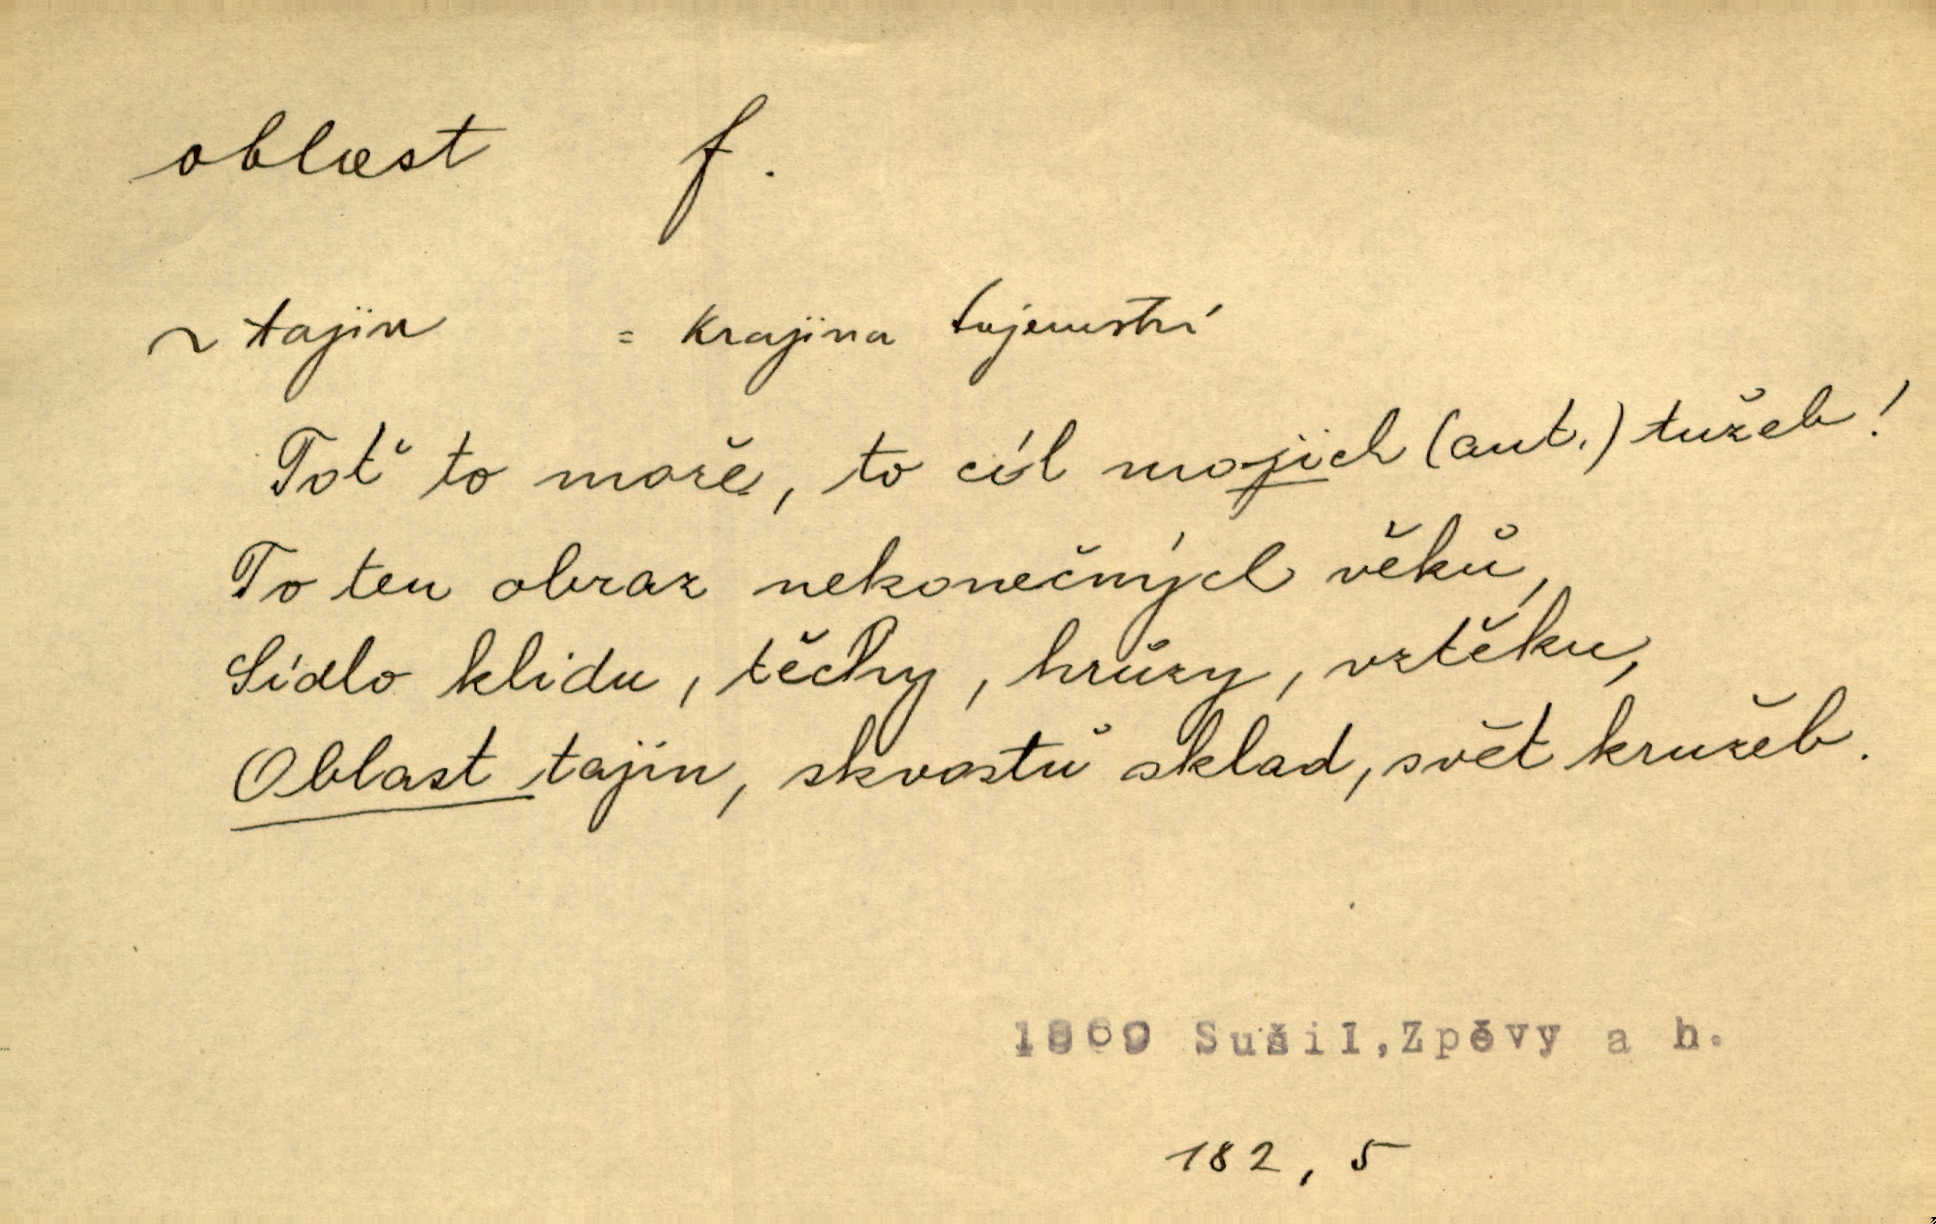 oblast f.
~ tajin = krajina tajemství
Toť to moře, to cíl mojich (aut.) tužeb!
To ten obraz nekonečných věků,
Sídlo klidu, těchy, hrůzy, vztěku,
Oblast tajin, skvostů sklad, svět kružeb.
1869 Sušil, Zpěvy a h.
182, 5